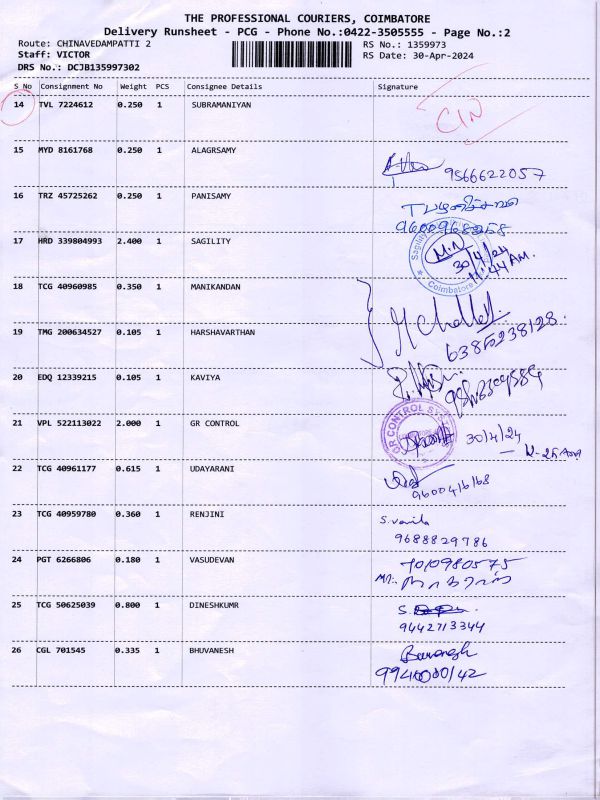 THE PROFESSIONAL COURIERS, COIMBATORE
Delivery Runsheet - PCG - Phone No.:0422-3505555 - Page No.:2
Route: CHINAVEDAMPATTI 2 RS No.: 1359973
Staff: VICTOR RS Date: 30-Apr-2024
DRS No.: DCJB135997302
S No Consignment No Weight PCS Consignee Details Signature
14 TVL 7224612 0.250 1 SUBRAMANIYAN
15 MYD 8161768 0.250 1 ALAGRSAMY
9566622057
16 TRZ 45725262 0.250 1 PANISAMY
17 HRD 339804993 2.400 1 SAGILITY
M.N
30/4/24
11:44 AM.
Coimbatore
18 TCG 40960985 0.350 1 MANIKANDAN
19 TMG 200634527 0.105 1 HARSHAVARTHAN
6385238128
20 EDQ 12339215 0.105 1 KAVIYA
21 VPL 522113022 2.000 1 GR CONTROL
GR CONTROL
30/4/24
22 TCG 40961177 0.615 1 UDAYARANI
9600416168
23 TCG 40959780 0.360 1 RENJINI
S.vanila
9688829786
24 PGT 6266806 0.180 1 VASUDEVAN
7010980575
25 TCG 50625039 0.800 1 DINESHKUMR
9442713344
26 CGL 701545 0.335 1 BHUVANESH